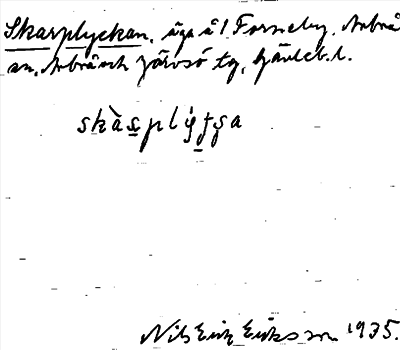 Skarplyckan, äga å 1 Forneby, Arbrå
sn, Arbrå och Järvsö tg, Gävleb. l.
skàspl
Nils Erik Eriksson 1935.